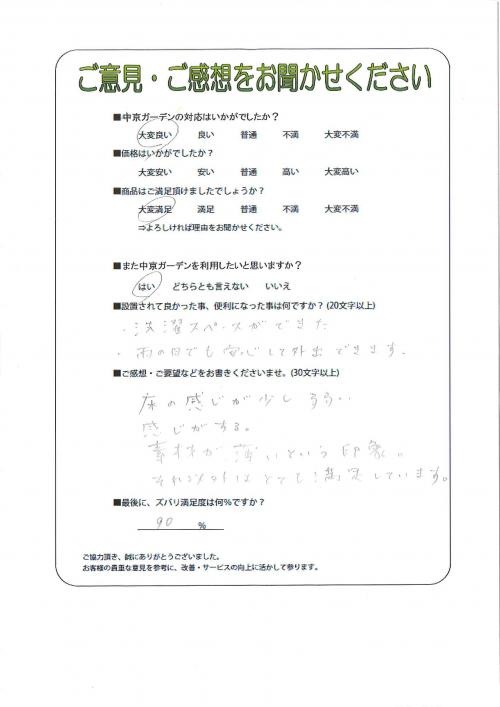 ご意見・ご感想をお聞かせください
■中京ガーデンの対応はいかがでしたか？
大変良い 良い 普通 不満 大変不満
■価格はいかがでしたか？
大変安い 安い 普通 高い 大変高い
■商品はご満足頂けましたでしょうか？
大変満足 満足 普通 不満 大変不満
⇒よろしければ理由をお聞かせください。
■また中京ガーデンを利用したいと思いますか？
はい どちらとも言えない いいえ
■設置されて良かった事、便利になった事は何ですか？(20文字以上)
・洗濯スペースができた
・雨の日でも安心して外出できます。
■ご感想・ご要望などをお書きくださいませ。(30文字以上)
床の感じが少し
感じがする。
素材が薄いという印象。
それ以外はとても満足しています。
■最後に、ズバリ満足度は何％ですか？
90 %
ご協力頂き、誠にありがとうございました。
お客様の貴重な意見を参考に、改善・サービスの向上に活かして参ります。